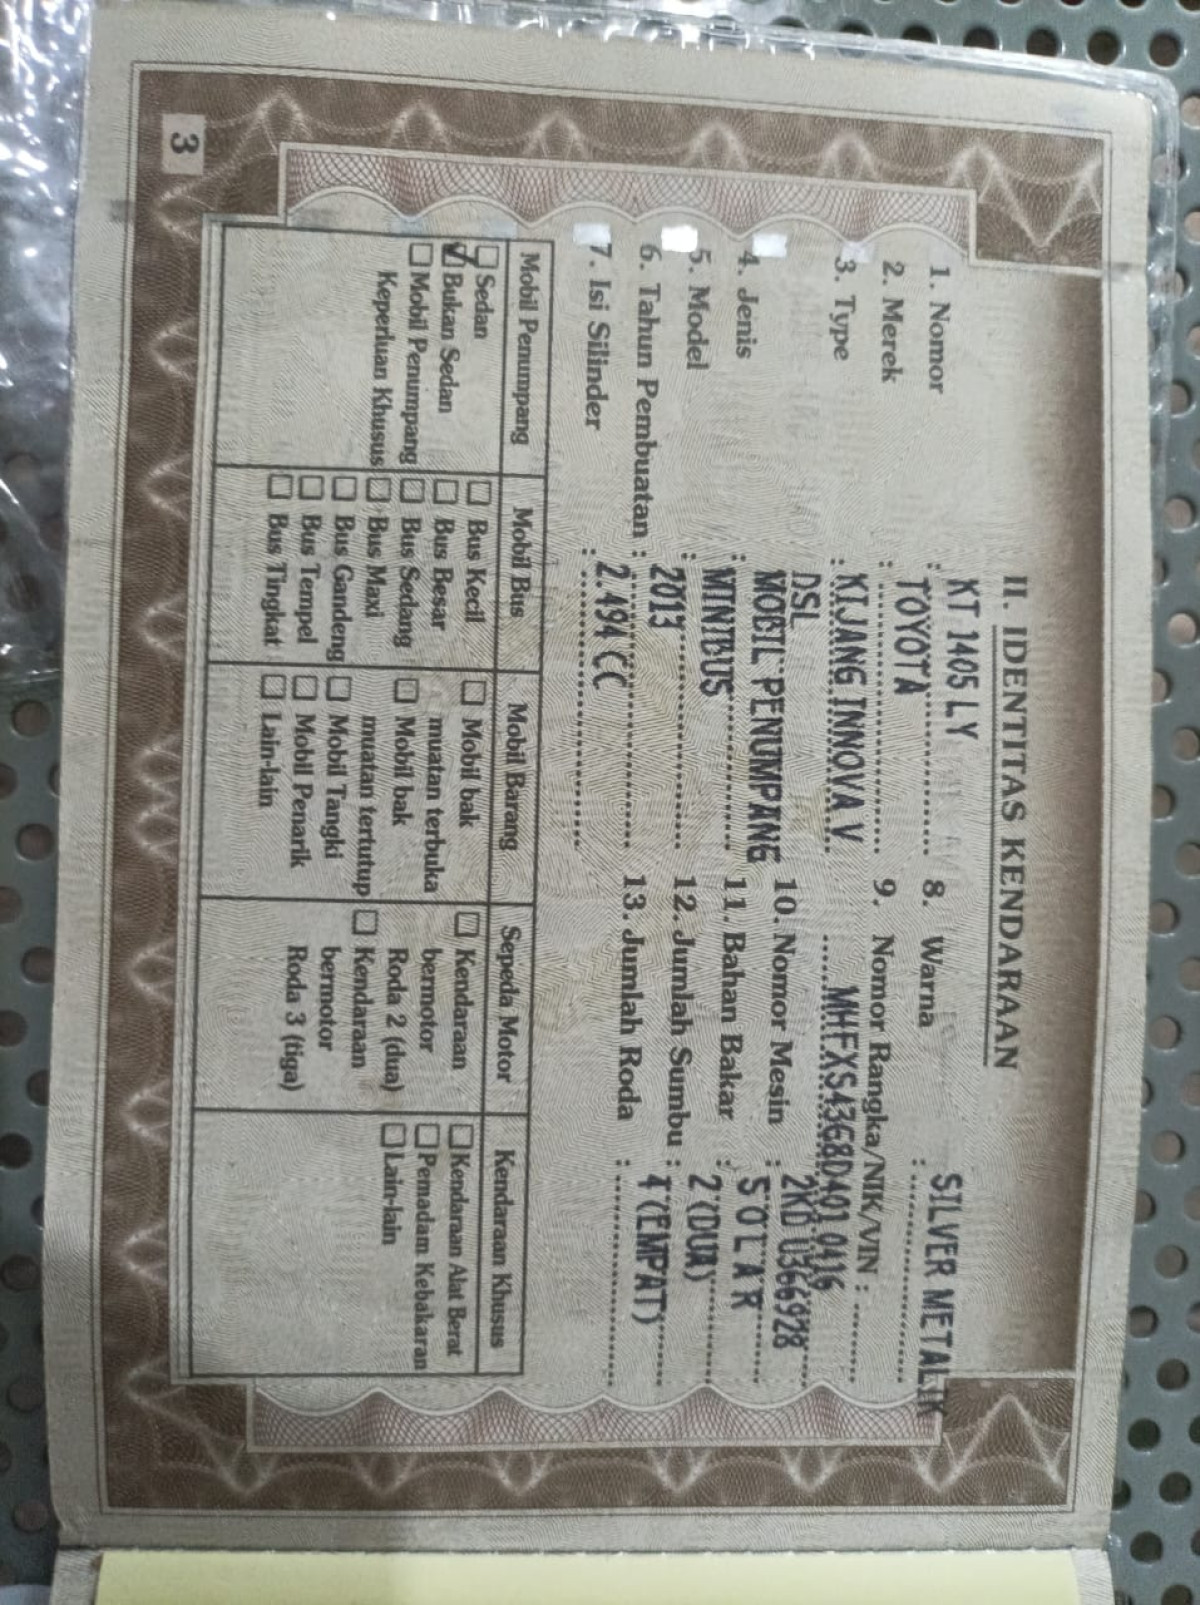 II. IDENTITAS KENDARAAN
1. Nomor : KT 1405 LY
2. Merek : TOYOTA
3. Type : KIJANG INNOVA V
DSL
4. Jenis : MOBIL PENUMPANG
5. Model : MINIBUS
6. Tahun Pembuatan : 2013
7. Isi Silinder : 2.494 CC
8. Warna : SILVER METALIK
9. Nomor Rangka/NIK/VIN :
MHFXS43G8D401 0416
10. Nomor Mesin : 2KD U366928
11. Bahan Bakar : SOLAR
12. Jumlah Sumbu : 2 (DUA)
13. Jumlah Roda : 4 (EMPAT)
Mobil Penumpang
Sedan
Bukan Sedan
Mobil Penumpang
Keperluan Khusus
Mobil Bus
Bus Kecil
Bus Besar
Bus Sedang
Bus Maxi
Bus Gandeng
Bus Tempel
Bus Tingkat
Mobil Barang
Mobil bak
muatan terbuka
Mobil bak
muatan tertutup
Mobil Tangki
Mobil Penarik
Lain-lain
Sepeda Motor
Kendaraan
bermotor
Roda 2 (dua)
Kendaraan
bermotor
Roda 3 (tiga)
Kendaraan Khusus
Kendaraan Alat Berat
Pemadam Kebakaran
Lain-lain
3